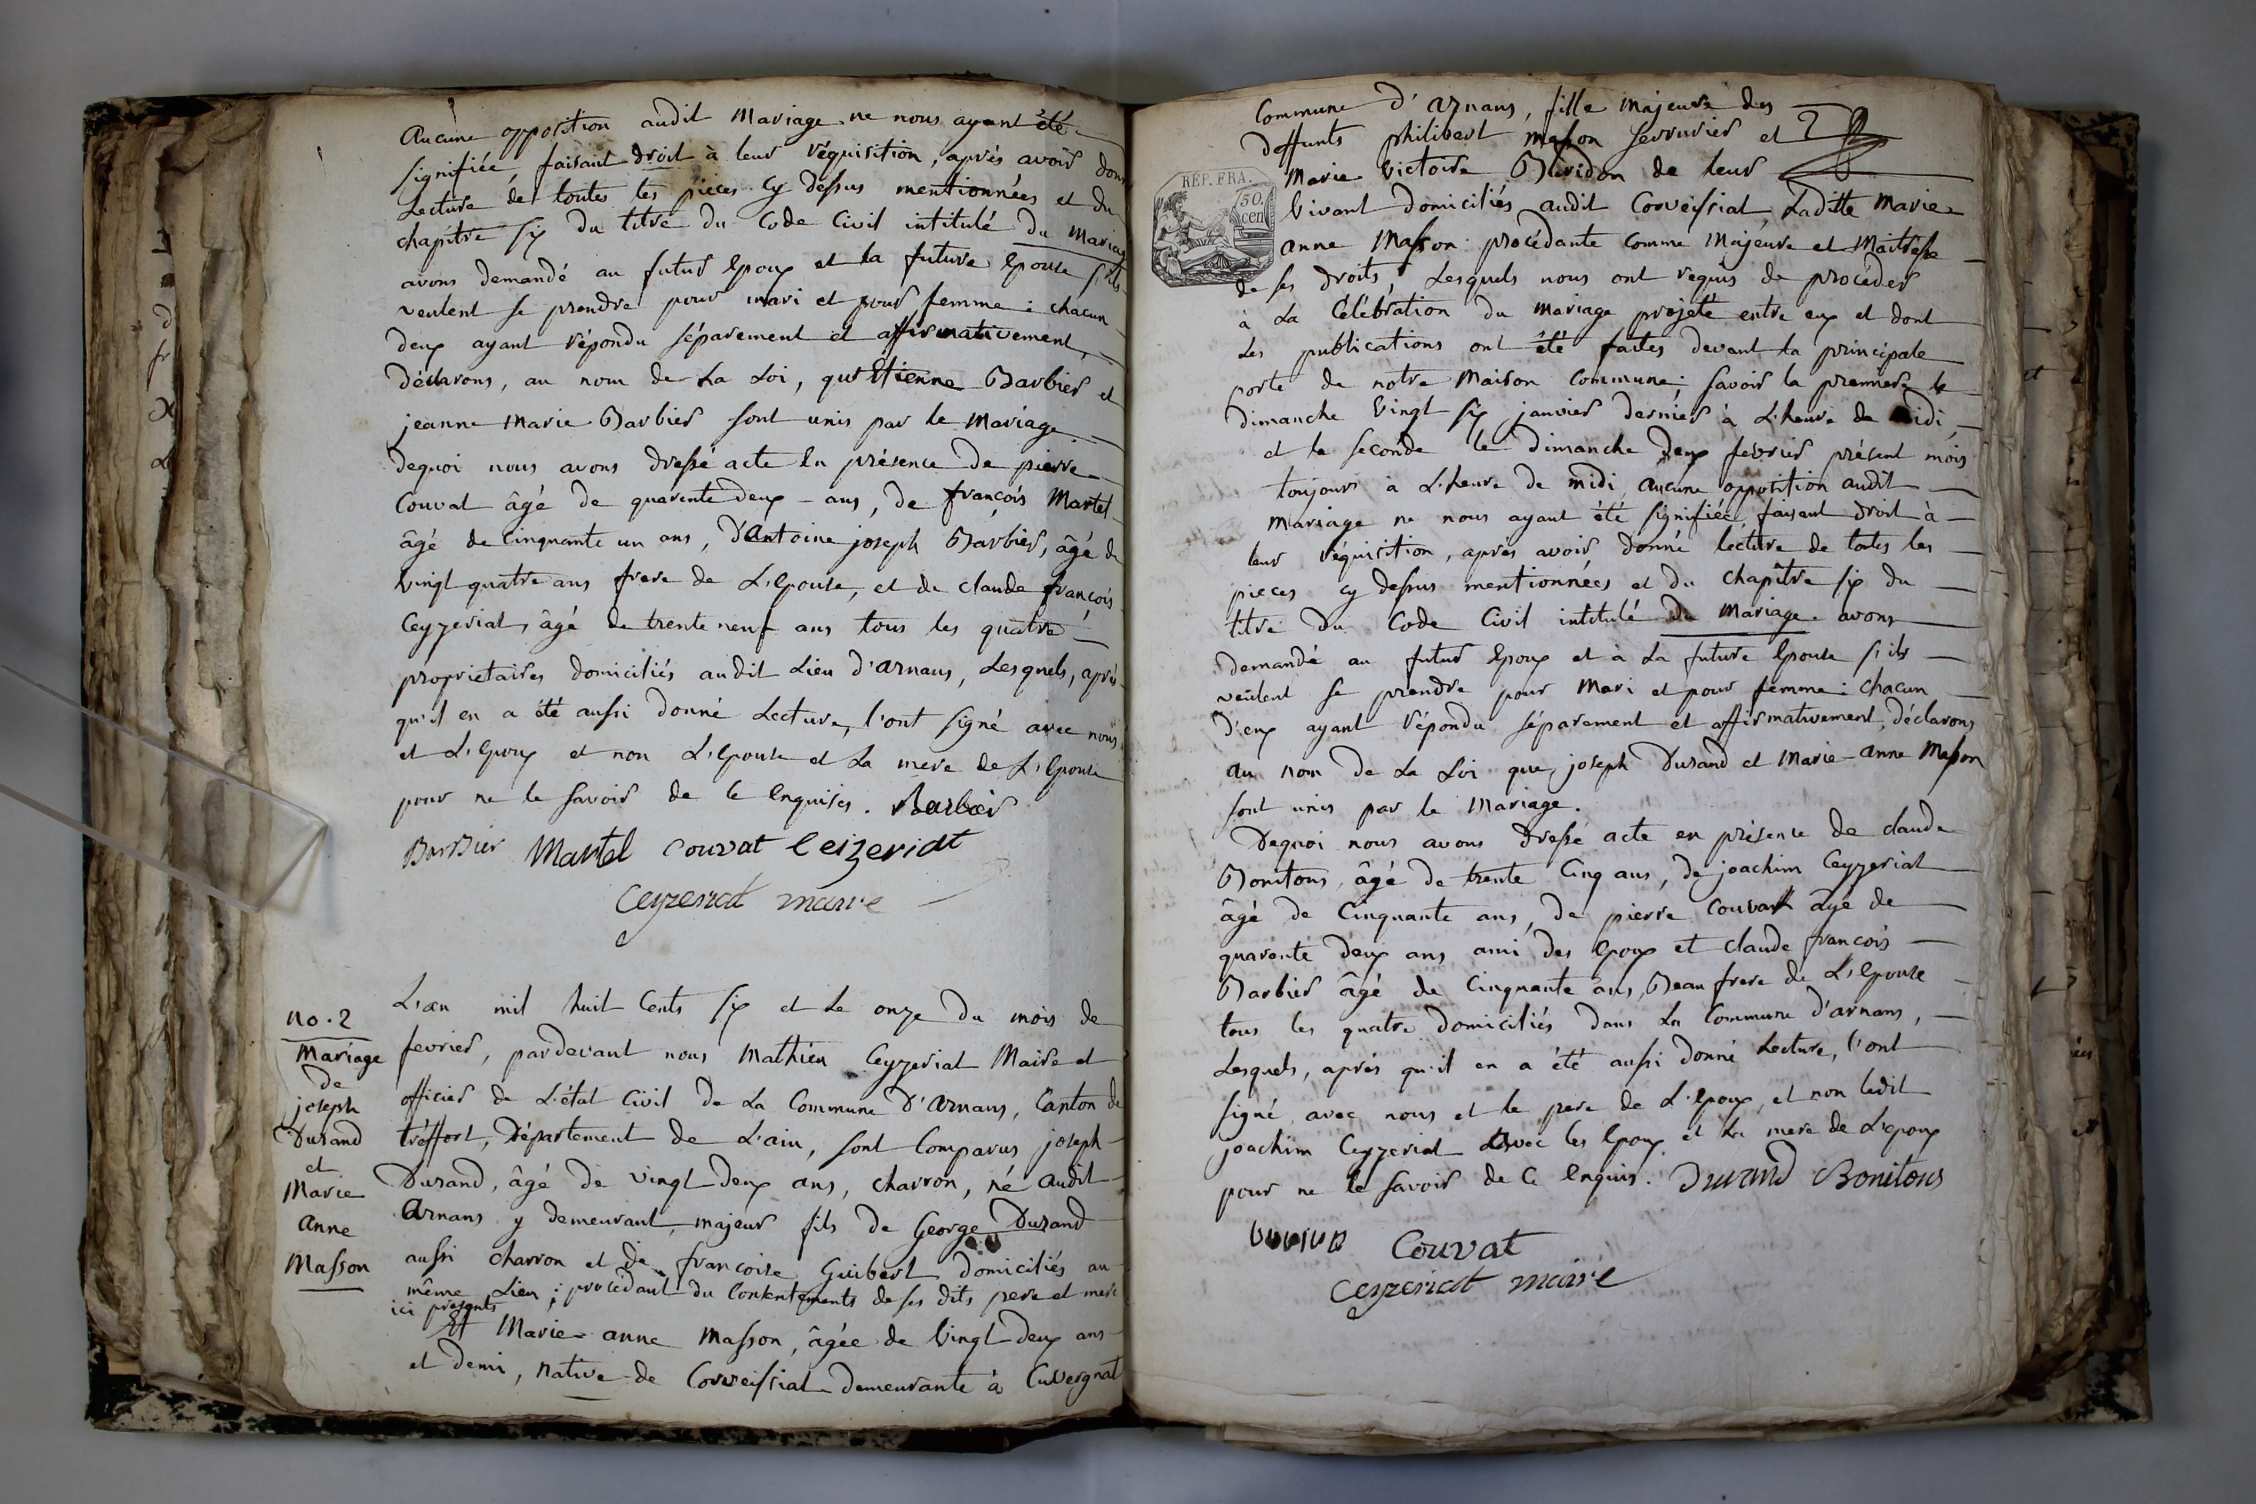 Aucune opposition audit Mariage ne nous ayant été
signifiée, faisant droit à leur réquisition, après avoir donn
Lecture de toutes les pièces cy dessus mentionnées et du
chapitre six du titre du Code Civil intitulé du Mariag
avons demandé au futur Epoux et la future Epouse s'ils
veulent se prendre pour mari et pour femme : chacun
deux ayant répondu séparement et affirmativement,
Déclarons, au nom de La Loi, qu'Etienne Barbier et
jeanne Marie Barbier sont unis par le Mariage.
Dequoi nous avons dressé acte En présence de pierre
Couvat âgé de quarente deux ans, de françois Martel
âgé de Cinquante un ans, d'Antoine joseph Barbier, âgé de
vingt quatre ans frere de L'Epouse, et de claude françois
Ceyzeriat, âgé de trente neuf ans tous les quatre
proprietaires domiciliés audit Lieu d'arnans, Lesquels, après
qu'il en a été aussi donné Lecture, l'ont signé avec nous
et L'Epoux et non L'Epouse et La mere de L'Epouse
pour ne le savoir de ce Enquises. Barbier
Barbier Martel Couvat Ceizeriat
Ceyzeriat maire
no. 2
Mariage
de
joseph
Durand
et
Marie
anne
Masson
L'an mil huit Cents six et Le onze du mois de
fevrier, pardevant nous Mathieu Ceyzeriat Maire et
officier de L'état Civil de La Commune d'Arnans, Canton de
tréffort, Département de L'ain, sont Comparus joseph
Durand, âgé de vingt deux ans, charron, né audit
Arnans y demeurant, majeur fils de George Durand
aussi charron et de françoise Guibert domiciliés au
même Lieu ; procédant du Consentements de ses dits pere et mere
ici présents
Et Marie anne Masson, âgée de Vingt deux ans
et demi, native de Corveissiat demeurante à Cuvergnat
Commune d'arnans, fille majeure des
deffunts philibert Masson serrurier et
Marie Victoire Blividon de leur
RÉP. FRA.
50.
cen
Vivant Domiciliés audit Corveissiat, Laditte Marie
anne Masson procédante Comme Majeure et Maitresse
de ses droits, Lesquels nous ont requis de procéder
à La Célébration du Mariage projeté entre eux et dont
Les publications ont été faites devant La principale
porte de notre Maison Commune ; savoir la premiere le
dimanche Vingt six janvier dernier à L'heure de midi,
et la seconde le Dimanche deux fevrier présent mois
toujours à L'heure de midi, aucune opposition audit
Mariage ne nous ayant été signifiée, faisant droit à
leur réquisition, après avoir donné lecture de toutes les
pieces cy dessus mentionnées et du chapitre six du
titre du Code Civil intitulé du Mariage avons
demandé au futur Epoux et à La future Epouse s'ils
veulent se prendre pour Mari et pour femme : chacun
d'eux ayant répondu séparement et affirmativement, déclarons
au nom de La Loi que joseph Durand et Marie-anne Masson
sont unis par le Mariage.
Dequoi nous avons dressé acte en présence de claude
Bonitons, âgé de trente Cinq ans, de joachim Ceyzeriat
âgé de Cinquante ans, de pierre Couvat âgé de
quarente deux ans ami des Epoux et claude françois
Barbier âgé de Cinquante ans, Beau frere de L'Epouse
tous les quatre domiciliés dans La Commune d'arnans,
Lesquels, après qu'il en a été aussi donné Lecture, l'ont
signé avec nous et le pere de L'Epoux, et non ledit
joachim Ceyzeriat avec les Epoux et La mere de L'Epoux
pour ne le savoir de Ce Enquis. Durand Bonitous
Couvat
Ceyzeriat maire